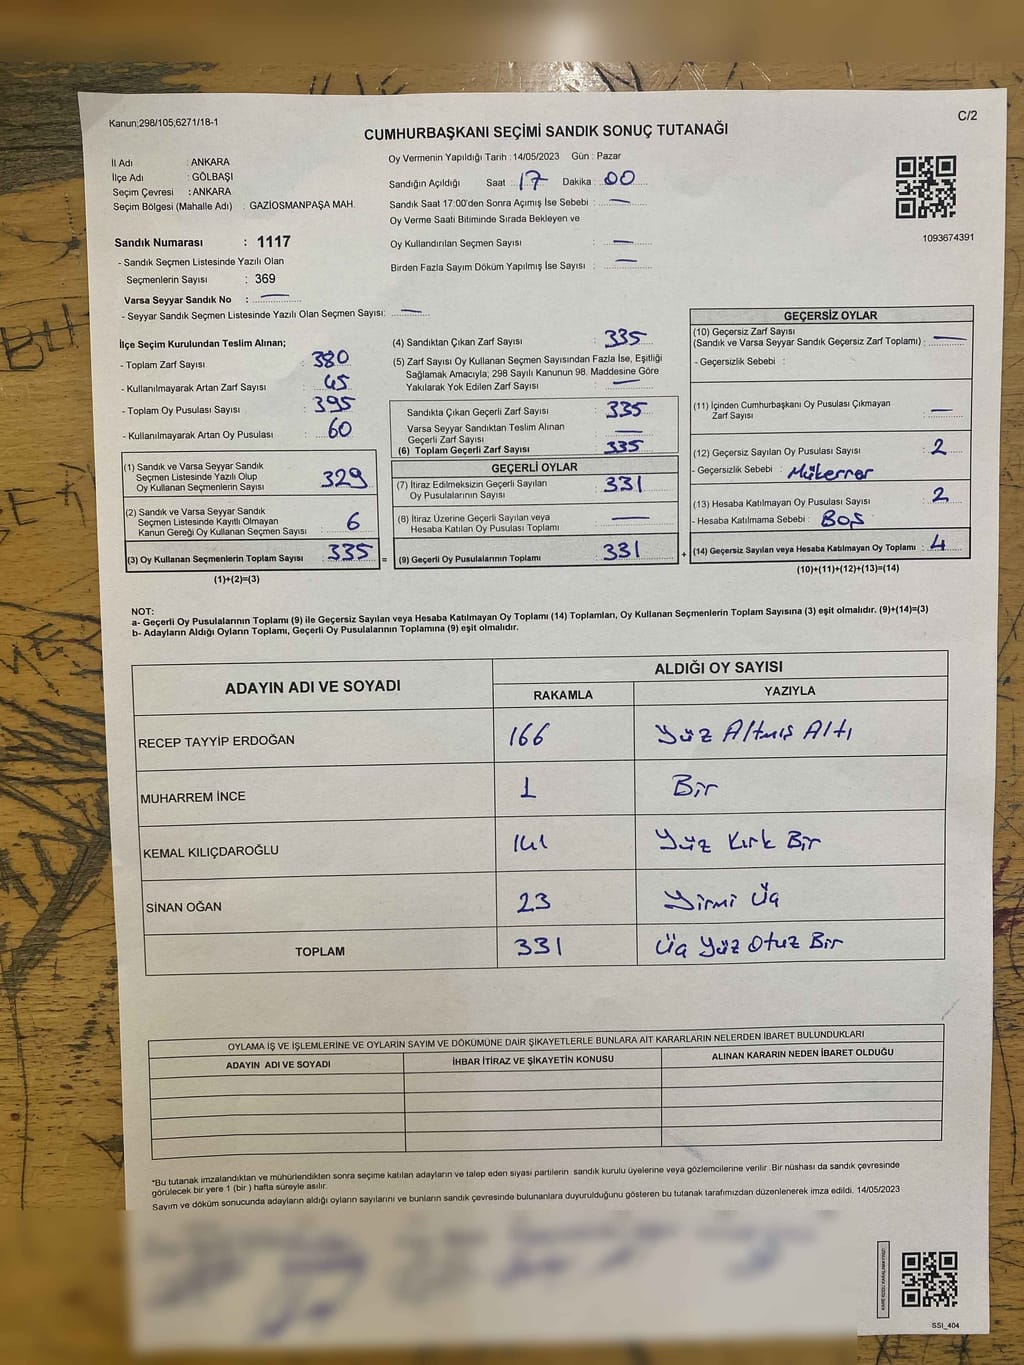 Kanun;298/105;6271/18-1
C/2
CUMHURBAŞKANI SEÇİMİ SANDIK SONUÇ TUTANAĞI
İl Adı : ANKARA
İlçe Adı : GÖLBAŞI
Seçim Çevresi : ANKARA
Seçim Bölgesi (Mahalle Adı) : GAZİOSMANPAŞA MAH.
Oy Vermenin Yapıldığı Tarih : 14/05/2023 Gün : Pazar
Sandığın Açıldığı Saat : 17 Dakika : 00
Sandık Saat 17:00'den Sonra Açımış İse Sebebi : —
Oy Verme Saati Bitiminde Sırada Bekleyen ve
Oy Kullandırılan Seçmen Sayısı : —
Birden Fazla Sayım Döküm Yapılmış İse Sayısı : —
1093674391
Sandık Numarası : 1117
- Sandık Seçmen Listesinde Yazılı Olan
Seçmenlerin Sayısı : 369
Varsa Seyyar Sandık No : —
- Seyyar Sandık Seçmen Listesinde Yazılı Olan Seçmen Sayısı: —
İlçe Seçim Kurulundan Teslim Alınan;
- Toplam Zarf Sayısı : 380
- Kullanılmayarak Artan Zarf Sayısı : 45
- Toplam Oy Pusulası Sayısı : 395
- Kullanılmayarak Artan Oy Pusulası : 60
(1) Sandık ve Varsa Seyyar Sandık
Seçmen Listesinde Yazılı Olup
Oy Kullanan Seçmenlerin Sayısı 329
(2) Sandık ve Varsa Seyyar Sandık
Seçmen Listesinde Kayıtlı Olmayan
Kanun Gereği Oy Kullanan Seçmen Sayısı 6
(3) Oy Kullanan Seçmenlerin Toplam Sayısı 335
(1)+(2)=(3)
(4) Sandıktan Çıkan Zarf Sayısı : 335
(5) Zarf Sayısı Oy Kullanan Seçmen Sayısından Fazla İse, Eşitliği
Sağlamak Amacıyla; 298 Sayılı Kanunun 98. Maddesine Göre
Yakılarak Yok Edilen Zarf Sayısı : —
Sandıkta Çıkan Geçerli Zarf Sayısı : 335
Varsa Seyyar Sandıktan Teslim Alınan
Geçerli Zarf Sayısı : —
(6) Toplam Geçerli Zarf Sayısı : 335
GEÇERLİ OYLAR
(7) İtiraz Edilmeksizin Geçerli Sayılan
Oy Pusulalarının Sayısı : 331
(8) İtiraz Üzerine Geçerli Sayılan veya
Hesaba Katılan Oy Pusulası Toplamı : —
= (9) Geçerli Oy Pusulalarının Toplamı : 331
GEÇERSİZ OYLAR
(10) Geçersiz Zarf Sayısı
(Sandık ve Varsa Seyyar Sandık Geçersiz Zarf Toplamı) : —
- Geçersizlik Sebebi :
(11) İçinden Cumhurbaşkanı Oy Pusulası Çıkmayan
Zarf Sayısı : —
(12) Geçersiz Sayılan Oy Pusulası Sayısı : 2
- Geçersizlik Sebebi : Mükerrer
(13) Hesaba Katılmayan Oy Pusulası Sayısı : 2
- Hesaba Katılmama Sebebi : BOŞ
+ (14) Geçersiz Sayılan veya Hesaba Katılmayan Oy Toplamı : 4
(10)+(11)+(12)+(13)=(14)
NOT:
a- Geçerli Oy Pusulalarının Toplamı (9) ile Geçersiz Sayılan veya Hesaba Katılmayan Oy Toplamı (14) Toplamları, Oy Kullanan Seçmenlerin Toplam Sayısına (3) eşit olmalıdır. (9)+(14)=(3)
b- Adayların Aldığı Oyların Toplamı, Geçerli Oy Pusulalarının Toplamına (9) eşit olmalıdır.
ADAYIN ADI VE SOYADI
ALDIĞI OY SAYISI
RAKAMLA YAZIYLA
RECEP TAYYİP ERDOĞAN 166 Yüz Altmış Altı
MUHARREM İNCE 1 Bir
KEMAL KILIÇDAROĞLU 141 Yüz Kırk Bir
SİNAN OĞAN 23 Yirmi Üç
TOPLAM 331 Üç Yüz Otuz Bir
OYLAMA İŞ VE İŞLEMLERİNE VE OYLARIN SAYIM VE DÖKÜMÜNE DAİR ŞİKAYETLERLE BUNLARA AİT KARARLARIN NELERDEN İBARET BULUNDUKLARI
ADAYIN ADI VE SOYADI İHBAR İTİRAZ VE ŞİKAYETİN KONUSU ALINAN KARARIN NEDEN İBARET OLDUĞU
*Bu tutanak imzalandıktan ve mühürlendikten sonra seçime katılan adayların ve talep eden siyasi partilerin sandık kurulu üyelerine veya gözlemcilerine verilir. Bir nüshası da sandık çevresinde
görülecek bir yere 1 (bir ) hafta süreyle asılır.
Sayım ve döküm sonucunda adayların aldığı oyların sayılarını ve bunların sandık çevresinde bulunanlara duyurulduğunu gösteren bu tutanak tarafımızdan düzenlenerek imza edildi. 14/05/2023
SSI_404